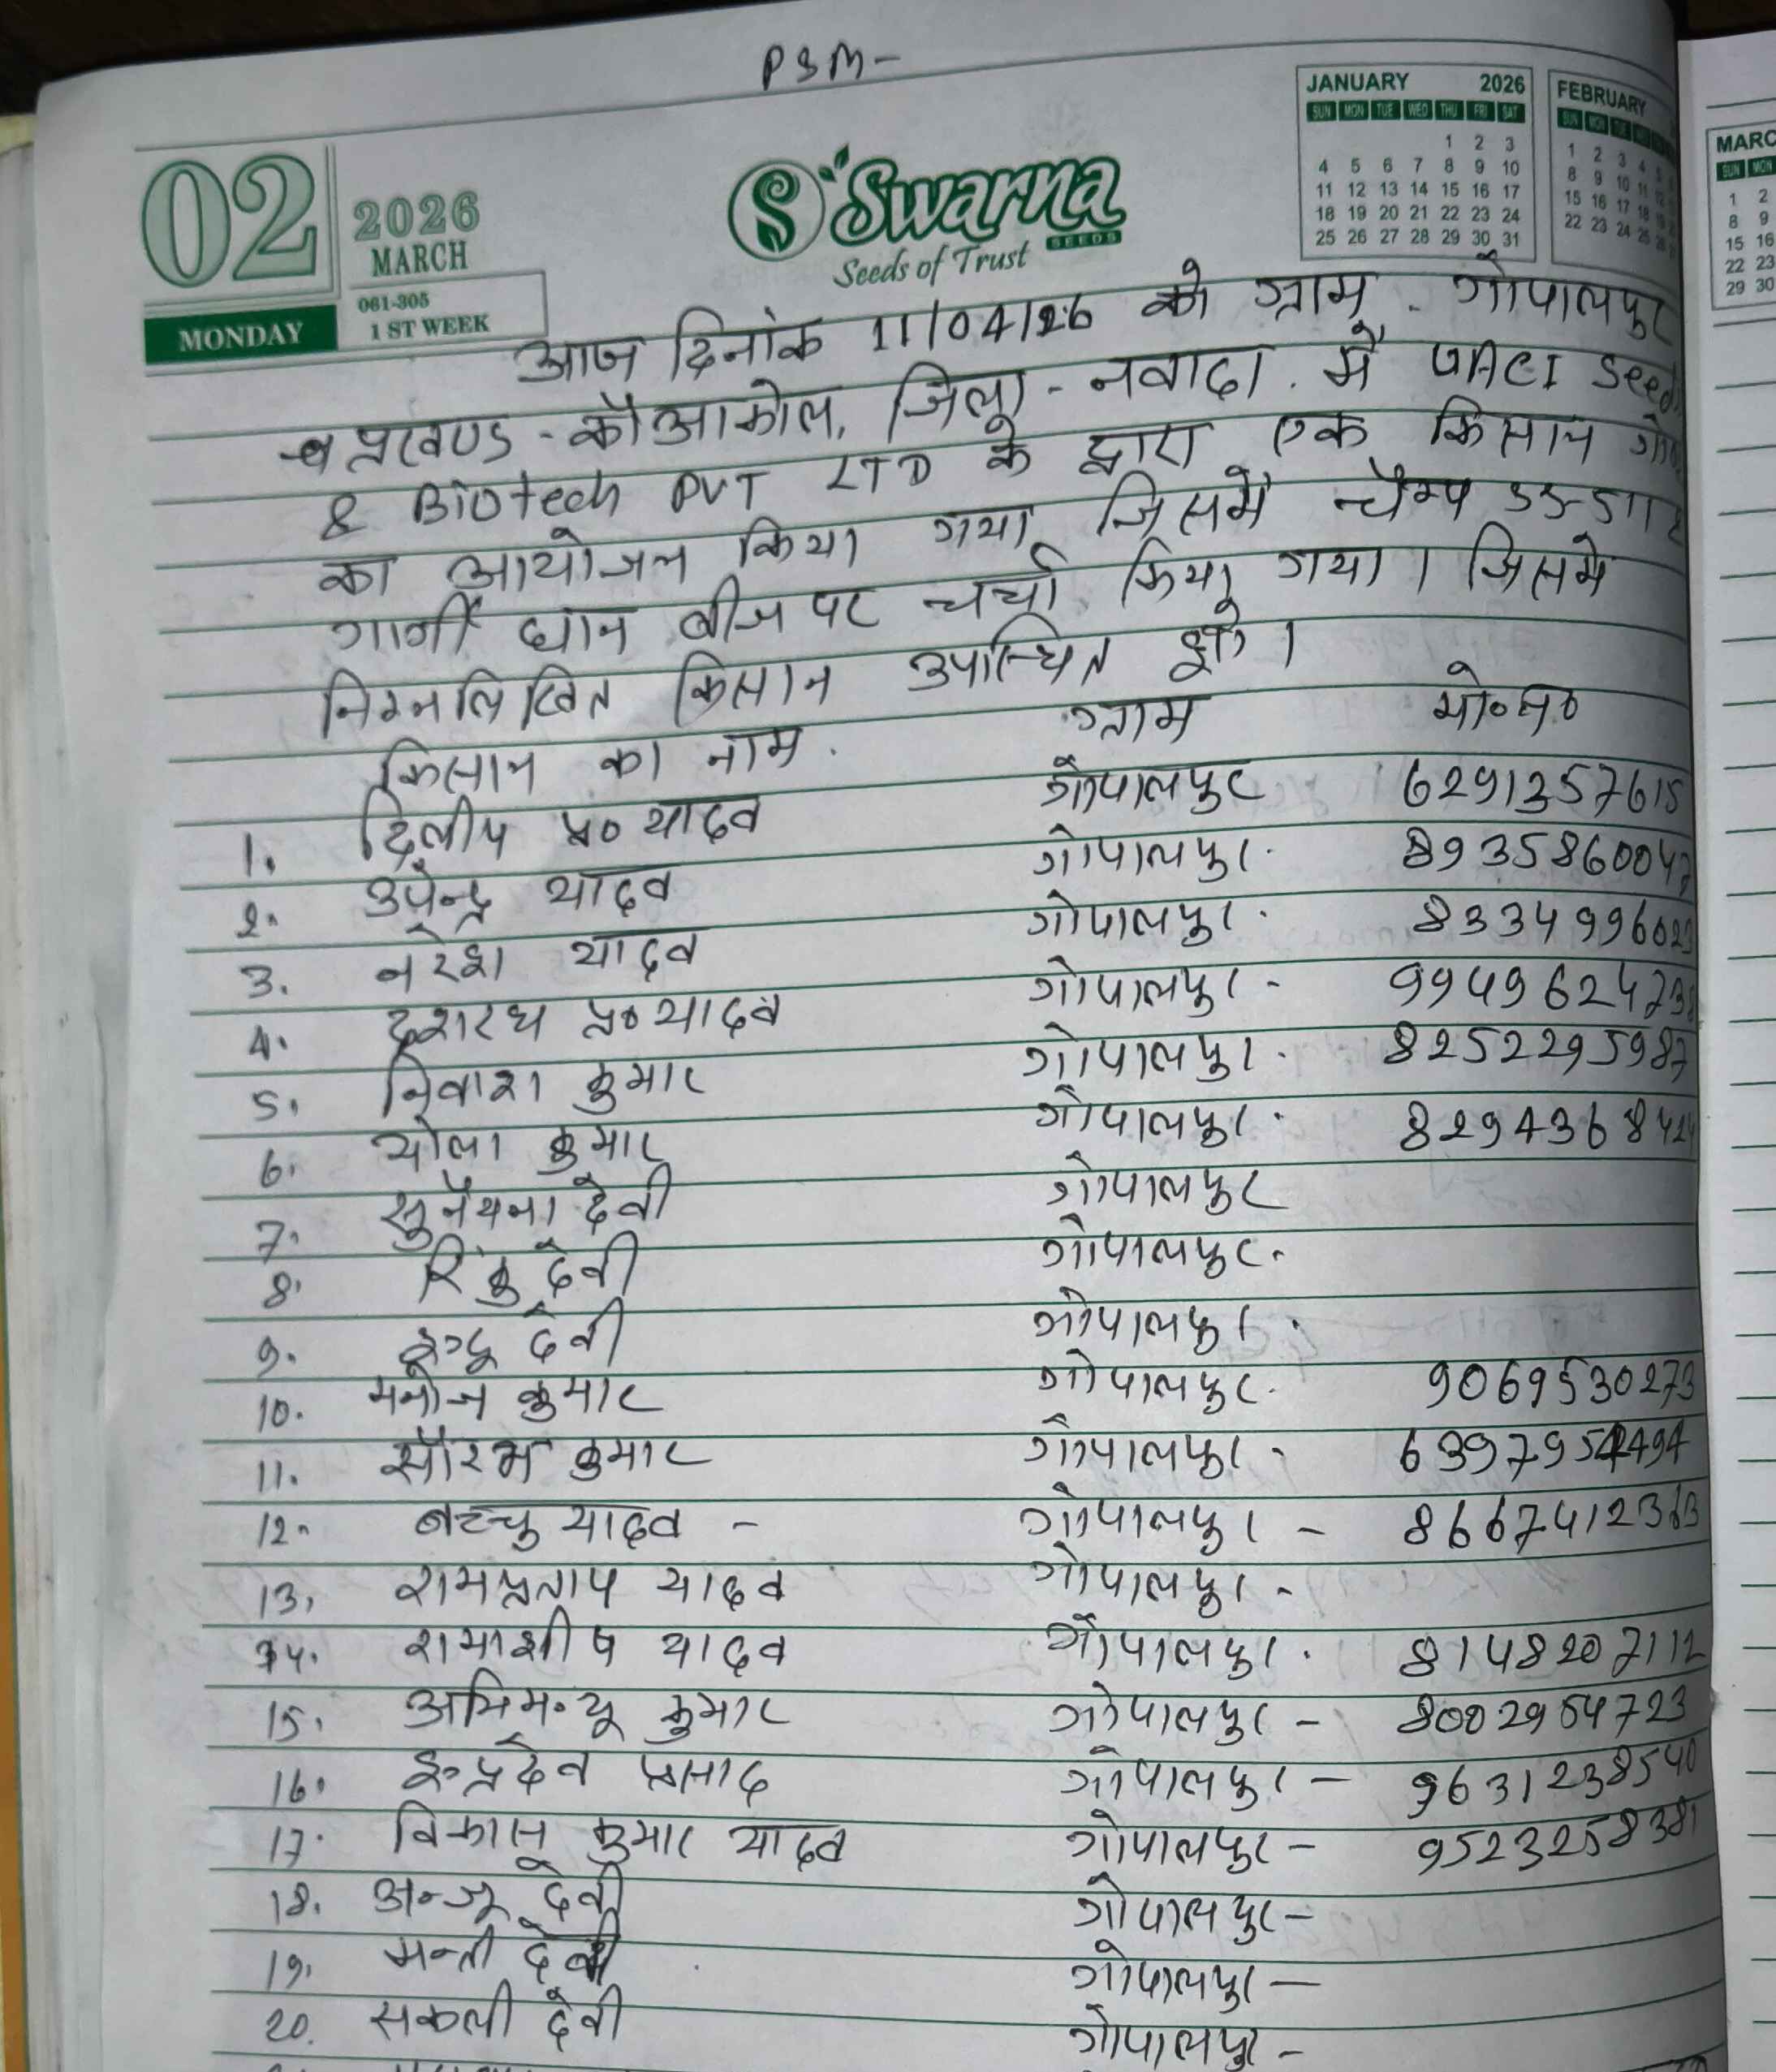 PSM-
02
2026
MARCH
MONDAY
061-305
1 ST WEEK
Swarna
SEEDS
Seeds of Trust
JANUARY 2026
SUN MON TUE WED THU FRI SAT
1 2 3
4 5 6 7 8 9 10
11 12 13 14 15 16 17
18 19 20 21 22 23 24
25 26 27 28 29 30 31
FEBRUARY
1 2 3 4
8 9 10 11
15 16 17 18
22 23 24 25
MARC
SUN MON
1 2
8 9
15 16
22 23
29 30
आज दिनांक 11/04/26 को ग्राम - गोपालपुर
प्रखण्ड - कौआकोल, जिला - नवादा में Seed
& Biotech PVT LTD के द्वारा एक किसान
का आयोजन किया गया जिसमें चैम्प
गार्गी धान बीज पर चर्चा किया गया । जिसमे
निम्नलिखित किसान उपस्थित हुए ।
किसान का नाम ग्राम मो०न०
1. दिलीप प्र० यादव गोपालपुर 6291357615
2. उपेन्द्र यादव गोपालपुर
3. नरेश यादव गोपालपुर
4. दशरथ प्र० यादव गोपालपुर -
5. निवाश कुमार गोपालपुर 8252295987
6. भोला कुमार गोपालपुर
7. सुनैयना देवी गोपालपुर
8. रिंकु देवी गोपालपुर
9. इन्दू देवी गोपालपुर
10. मनोज कुमार गोपालपुर 9069530273
11. सौरभ कुमार गोपालपुर -
12. बच्चु यादव - गोपालपुर -
13. रामप्रताप यादव गोपालपुर -
14. रामाशीष यादव गोपालपुर 8148207112
15. अभिमन्यू कुमार गोपालपुर - 8002954723
16. इन्द्रदेव प्रसाद गोपालपुर - 9631238540
17. विकास कुमार यादव गोपालपुर - 9523258381
18. अन्जू देवी गोपालपुर -
19. मन्ती देवी गोपालपुर -
20. सकली देवी गोपालपुर -